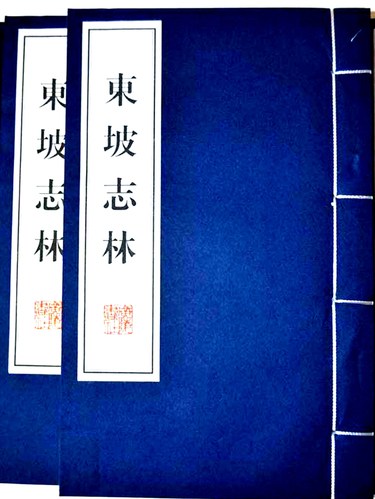 東坡志林
東坡志林